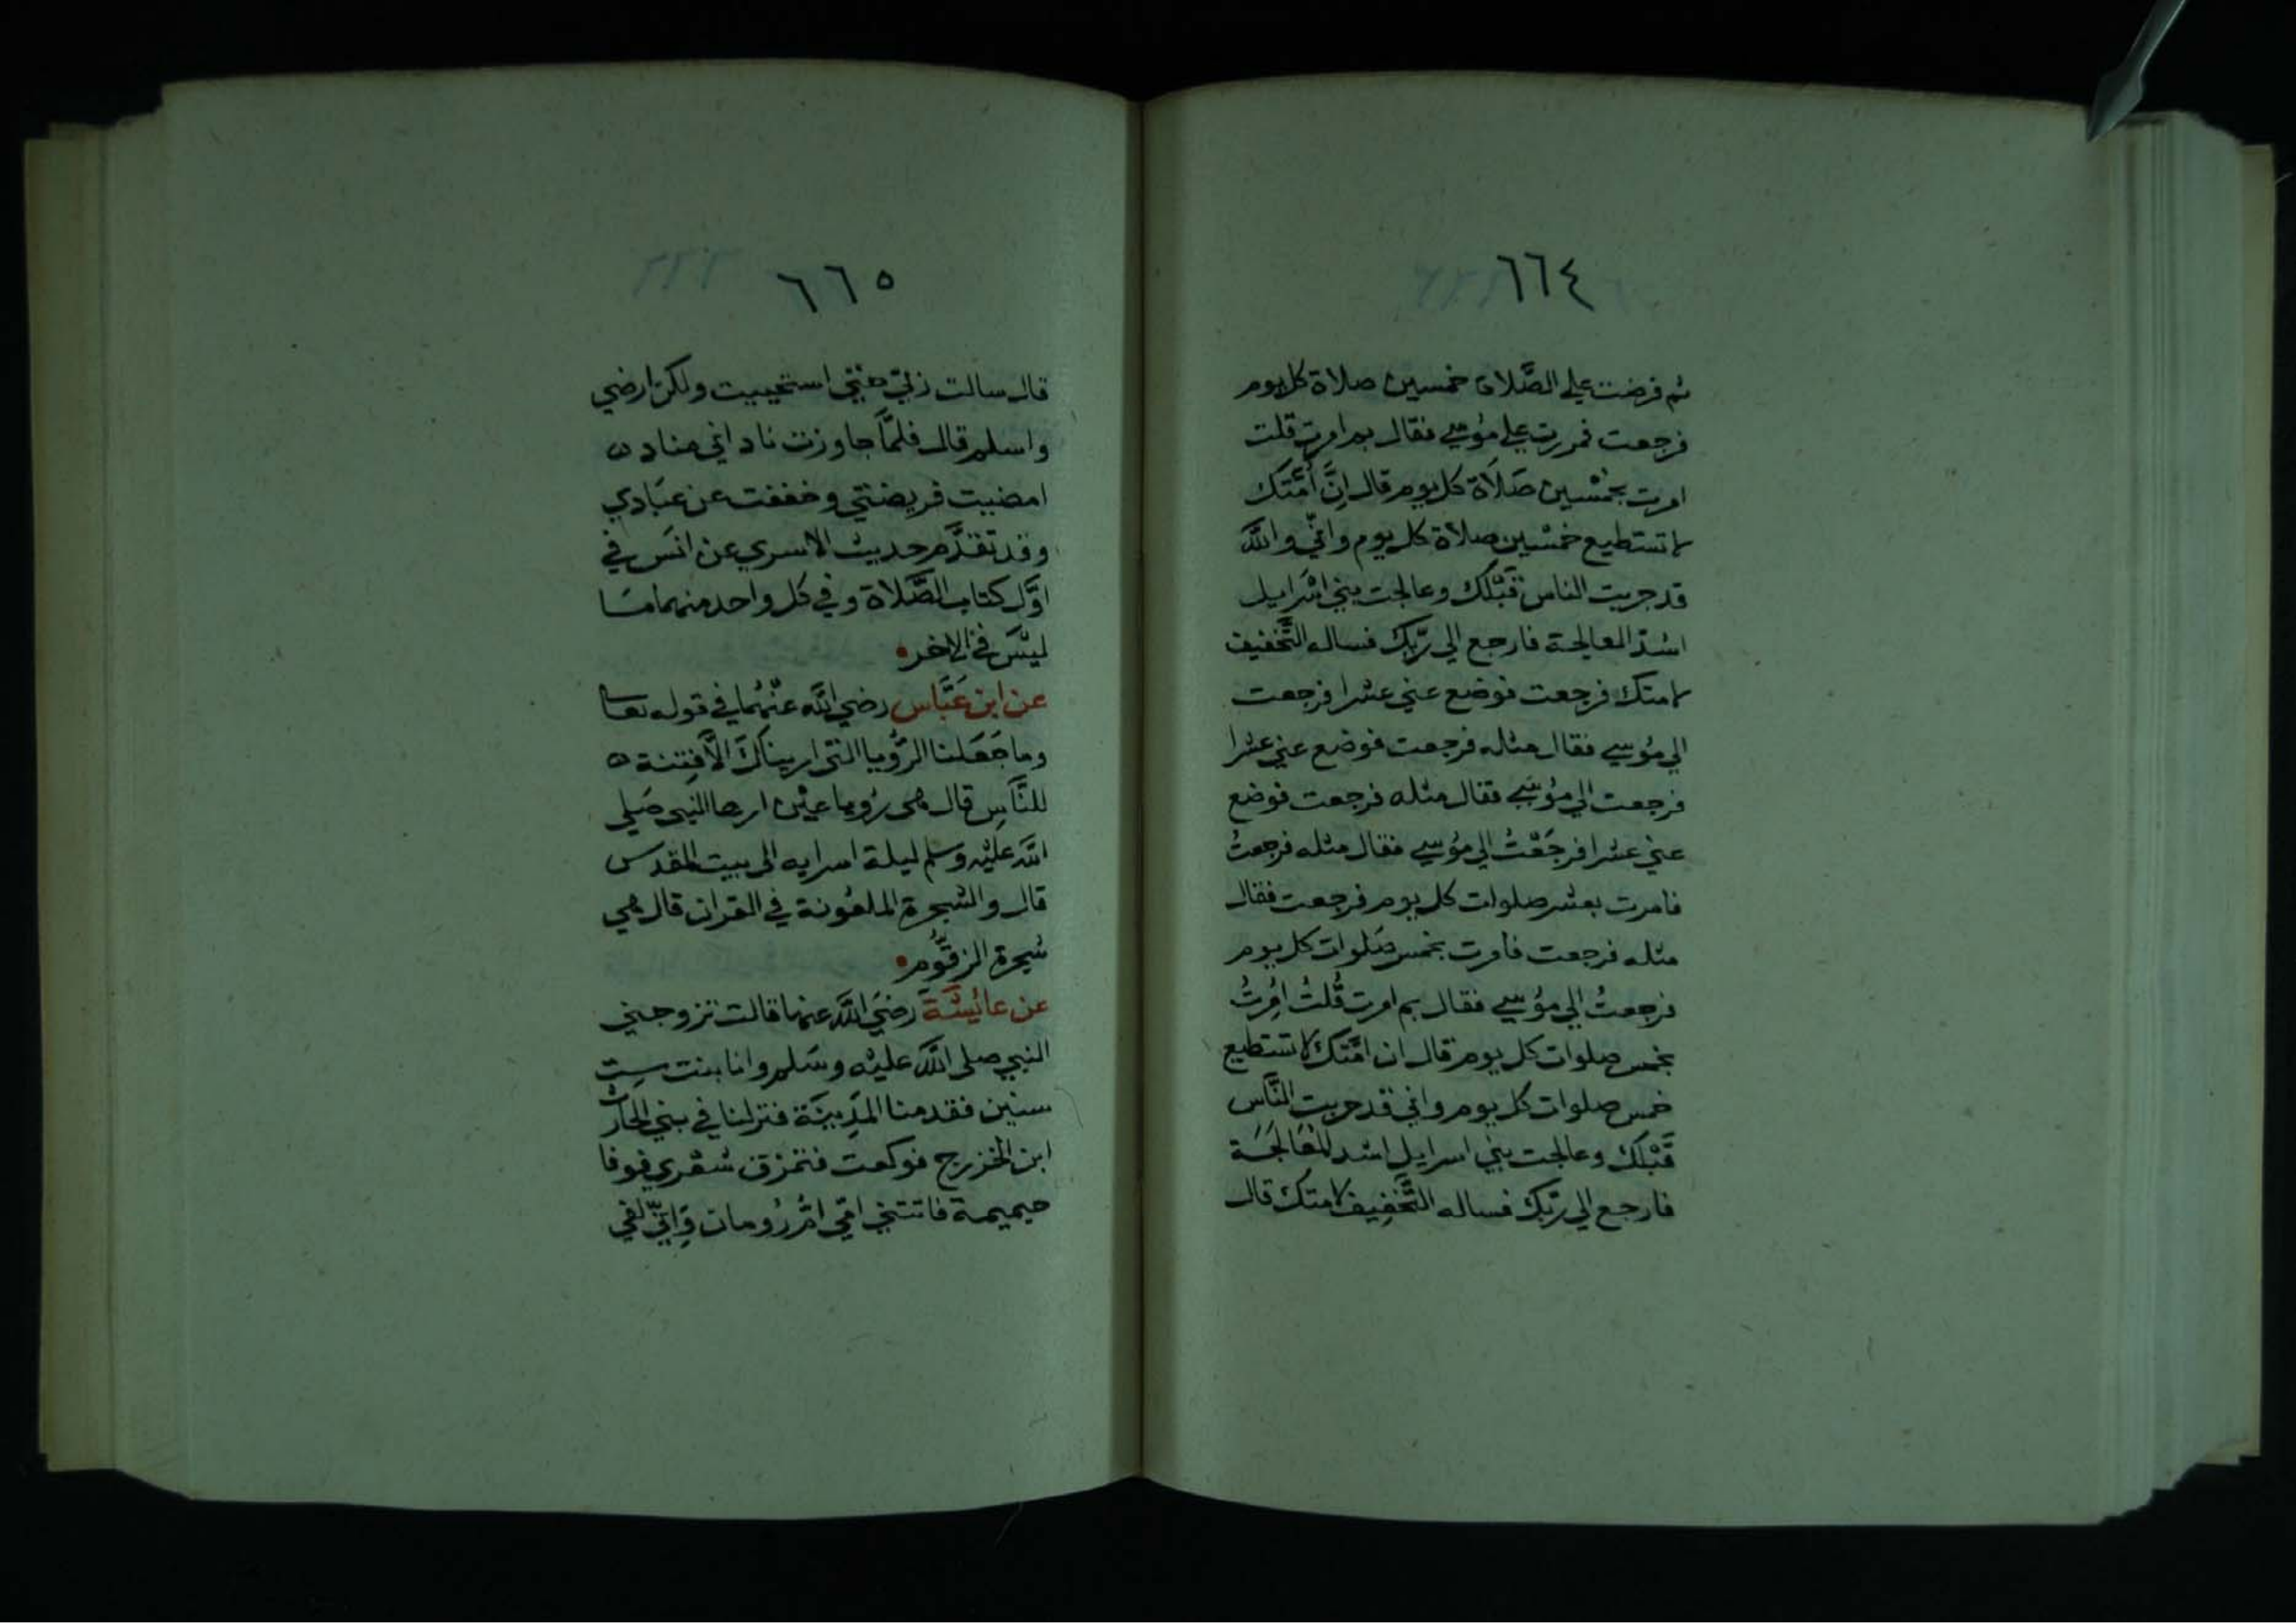 ٦٦٤
ثم فرضت علي الصَّلاة خمسين صلاة كل يوم
فرجعت فمررت علي مؤسي فقال بم امرت قلت
امرت بخمْسين صَلَاة كل يوم قال انَّ أمَّتَك
لا تستطيع خمْسين صلاة كل يوم واني والله
قد جربت الناس قَبْلك وعالجت بني اسْرايل
اشدّ المعالجة فارجع الي ربّك فساله التَّخفيف
لامتك فرجعت فوضع عني عشرا فرجعت
الي مؤسي فقال مثله فرجعت فوضع عني عشرا
فرجعت الي مؤسَي فقال مثله فرجعت فوضع
عني عشرا فرجَعْتُ الي مؤسي فقال مثله فرجعتُ
فامرت بعشر صلوات كل يوم فرجعت فقال
مثله فرجعت فامرت بخمس صَلوات كل يوم
فرجعتُ الي مؤسي فقال بم امرت قُلتُ امُرتُ
بخمس صلوات كل يوم قال ان امَّتَك لا تستطيع
خمس صلوات كل يوم واني قد جربت النَّاس
قَبْلك وعالجت بني اسرايل اشد المعَالجَة
فارجع الي ربّك فساله التَّخفِيف لامتك قال
٦٦٥
قال سالت ربي حتي استحييت ولكن ارضي
واسلم قال فلمَّا جاوزت ناداني مناد
امضيت فريضتي وخففت عن عبَادي
وقد تقدَّم حديث الاسري عن انسَ في
اوَّل كتاب الصَّلاة وفي كل واحد منهما مَا
ليْسَ في الاخر
عن ابن عَبَّاس رضي الله عنْهُما في قوله تعا
وما جَعَلنا الرُّويا التي اريناكَ الَّا فِتنة
للنَّاسِ قال هى رُويا عيْن اريها النبي صَلي
الله عليْه وسلم ليلة اسرايه الى بيت المقدس
قال والشجرة الملعُونة في القران قال هي
شجرة الزقُّوم
عن عائيشَةَ رضيَ الله عنها قالت تزوجني
النبي صلى الله عليْه وسَلم وانا بنت ست
سنين فقدمنا المَدِينَة فنزلنا في بني الحارث
ابن الخزرج فوكعت فتمزق شعْري فوفا
جيميمة فاتتني امّي امّ رُومان وَانيّ لفي